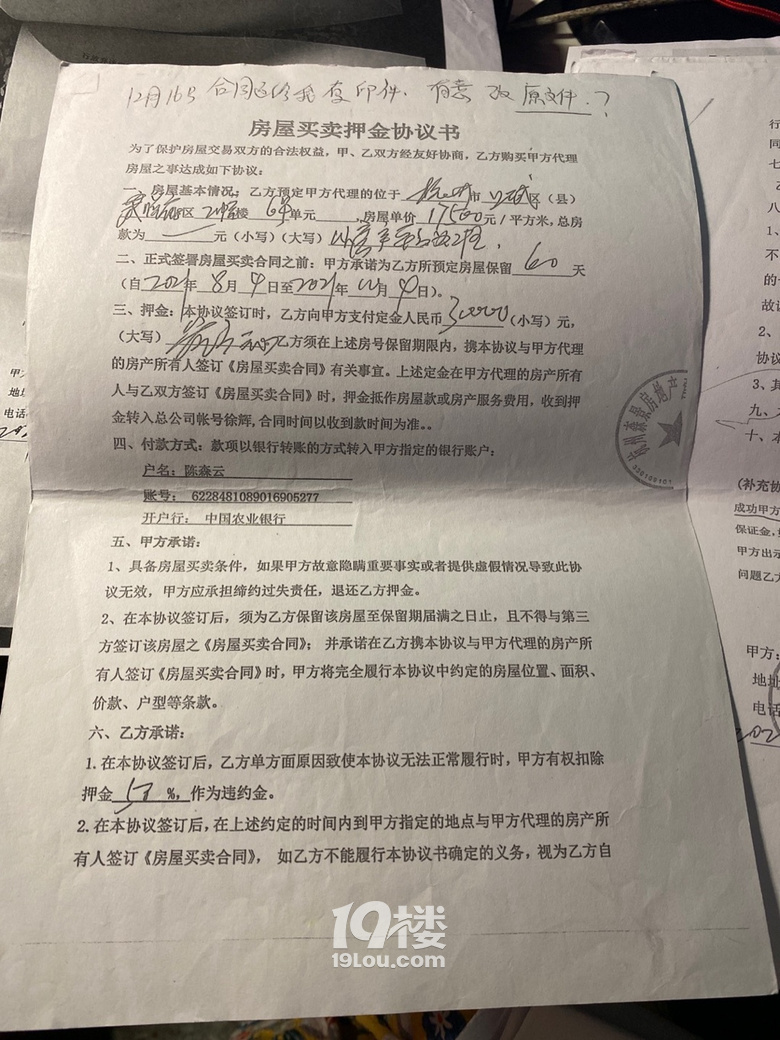 12月16号 合同还给我复印件、有意改原文件.?
房屋买卖押金协议书
为了保护房屋交易双方的合法权益，甲、乙双方经友好协商，乙方购买甲方代理
房屋之事达成如下协议：
一、房屋基本情况：乙方预定甲方代理的位于 杭州 市 区（县）
区 楼 单元 ，房屋单价 17500 元／平方米，总房
款为 元（小写）（大写）
二、正式签署房屋买卖合同之前：甲方承诺为乙方所预定房屋保留 60 天
（自 2021 年 8 月 9 日至 2021 年 月 9 日）。
三、押金：本协议签订时，乙方向甲方支付定金人民币 30000 （小写）元，
（大写） 乙方须在上述房号保留期限内，携本协议与甲方代理
的房产所有人签订《房屋买卖合同》有关事宜。上述定金在甲方代理的房产所有
人与乙双方签订《房屋买卖合同》时，押金抵作房屋款或房产服务费用，收到押
金转入总公司帐号徐辉,合同时间以收到款时间为准。。
四、付款方式：款项以银行转账的方式转入甲方指定的银行账户：
户名：陈森云
账号： 6228481089016905277
开户行： 中国农业银行
五、甲方承诺：
1、具备房屋买卖条件，如果甲方故意隐瞒重要事实或者提供虚假情况导致此协
议无效，甲方应承担缔约过失责任，退还乙方押金。
2、在本协议签订后，须为乙方保留该房屋至保留期届满之日止，且不得与第三
方签订该房屋之《房屋买卖合同》；并承诺在乙方携本协议与甲方代理的房产所
有人签订《房屋买卖合同》时，甲方将完全履行本协议中约定的房屋位置、面积、
价款、户型等条款。
六、乙方承诺：
1.在本协议签订后，乙方单方面原因致使本协议无法正常履行时，甲方有权扣除
押金 %，作为违约金。
2.在本协议签订后，在上述约定的时间内到甲方指定的地点与甲方代理的房产所
有人签订《房屋买卖合同》， 如乙方不能履行本协议书确定的义务，视为乙方自
杭州森景房地产
19楼
19Lou.com
甲方
地址
电话
行
同
七
八
1、
不
的一
故访
2、
协议
3、其
九、
十、本
（补充协
成功甲方
保证金，
甲方出示
问题乙方
甲方：
地址
电话
202